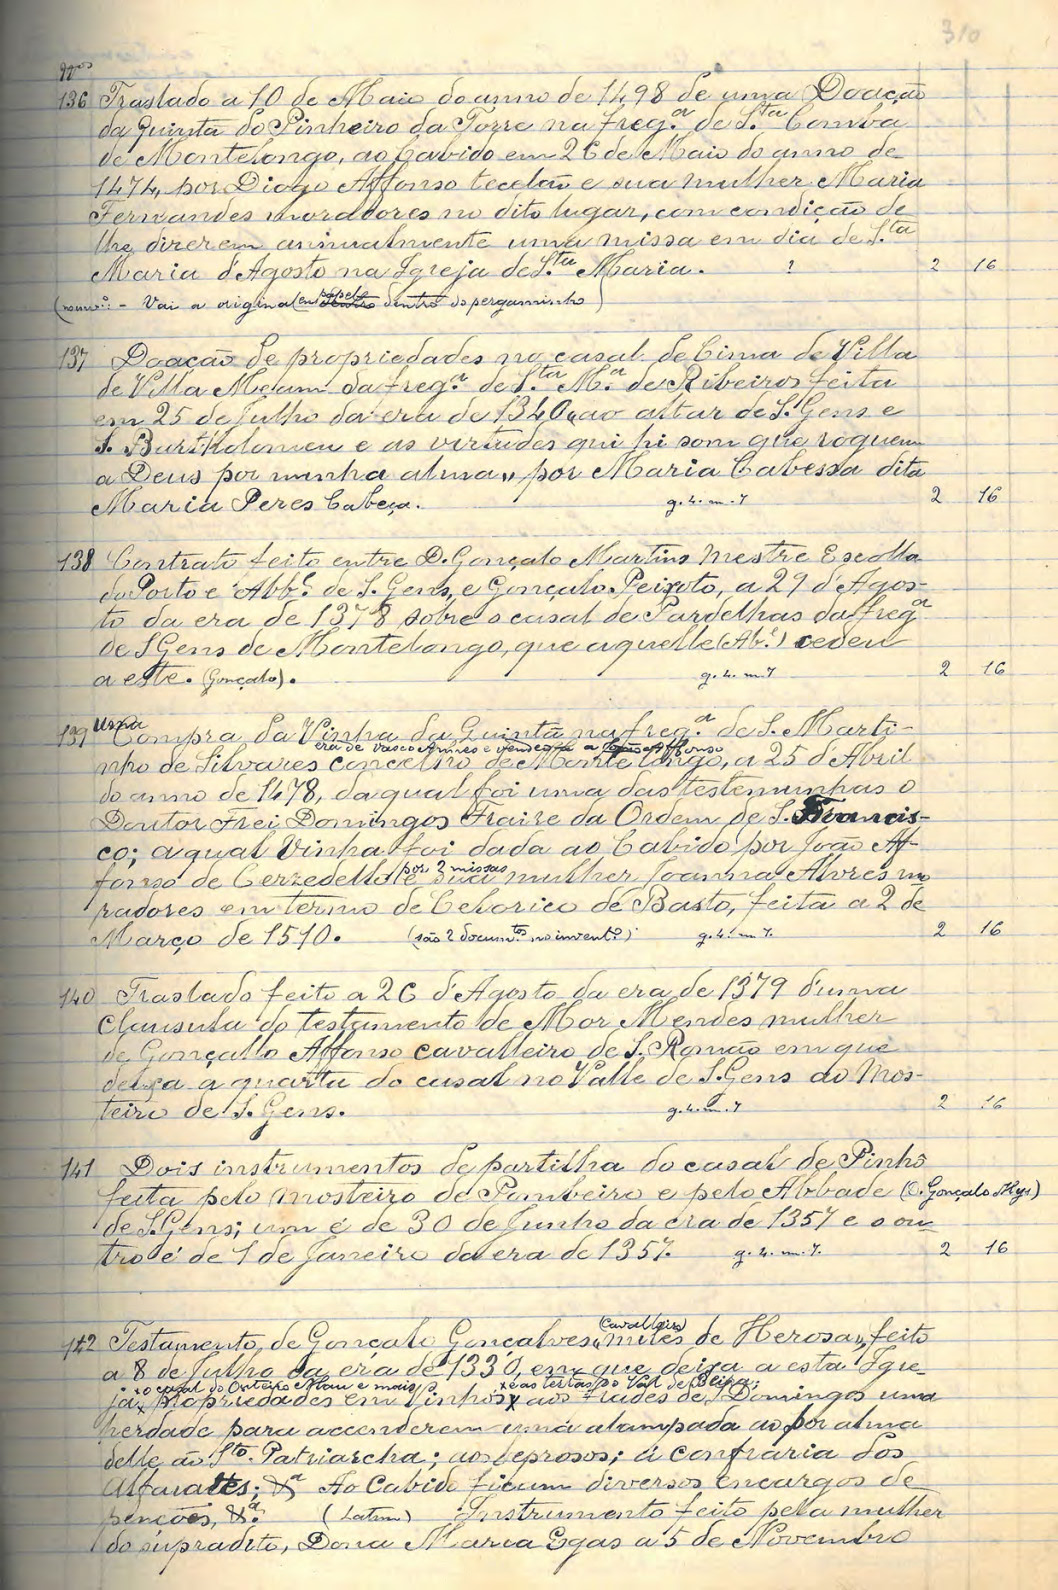 310
Nos
136 Traslado a 10 de Maio do anno de 1498 de uma Doação
da Quinta do Pinheiro da Torre na freg.a de S.ta Comba
de Montelongo, ao Cabido em 26 de Maio do anno de
1474, por Diogo Affonso tecelão e sua mulher Maria
Fernandes moradores no dito lugar, com condição de
lhe dizerem annualmente uma missa em dia de S.ta
Maria d'Agosto na Igreja de S.ta Maria. ? 2 16
- Vai a original em papel dentro do pergaminho)
137 Doação de propriedades no casal de Cima de Villa
de Villa Meam da freg.a de S.ta M.a de Ribeiros feita
em 25 de Julho da era de 1340 „ao altar de S. Gens e
S. Bartholomeu e as virtudes qui hi som que roguem
a Deus por minha alma„ por Maria Cabessa dita
Maria Peres Cabeça. g. 4. m. 7 2 16
138 Contrato feito entre D. Gonçalo Martins Mestre Escolla
do Porto e Abb.e de S. Gens, e Gonçalo Peixoto, a 29 d'Agos-
to da era de 1378 sobre o casal de Pardelhas da freg.a
de S Gens de Montelongo, que aquelle (Ab.e) cedeu
a este. (Gonçalo). g. 4. m. 7 2 16
139 Uma Compra da Vinha da Quintã na freg.a de S. Marti-
era de Vasco Annes e vendeu-a a João Affonso
nho de Silvares concelho de Monte longo, a 25 d'Abril
do anno de 1478, da qual foi uma das testemunhas o
Doutor Frei Domingos Fraire da Ordem de S. Francis-
co; a qual Vinha foi dada ao Cabido por João Af-
por 2 missas
fonso de Cerzedello e sua mulher Joanna Alvres mo
radores em termo de Celorico de Basto, feita a 2 de
Março de 1510. (são 2 docum.tos no invent.o) g. 4. m. 7. 2 16
140 Traslado feito a 26 d'Agosto da era de 1379 d'uma
clausula do testamento de Mor Mendes mulher
de Gonçallo Affonso cavalleiro de S. Romão em que
deixa a quarta do casal no Valle de S. Gens ao Mos-
teiro de S. Gens. g. 4. m. 7 2 16
141 Dois instrumentos de partilha do casal de Pinhô
feita pelo mosteiro de Pombeiro e pelo Abbade (D. Gonçalo Miz)
de S. Gens; um é de 30 de Junho da era de 1357 e o ou
tro é de 1 de Janeiro da era de 1357. g. 4. m. 7. 2 16
142 Testamento de Gonçalo Gonçalves „miles (Cavalleiro) de Herosa„, feito
a 8 de Julho da era de 1330, em que deixa a esta Igre-
x o casal do Outeiro e mais x e as terras do Val de
ja, propriedades em Pinhos x aos frades de S. Domingos uma
herdade para accenderem uma alampada ao por alma
delle ao S.to Patriarcha; aos leprosos; á confraria dos
Alfaiates; &a Ao Cabido ficam diversos encargos de
pencões, &.a (Latim) Instrumento feito pela mulher
do supradito, Dona Maria Egas a 5 de Novembro